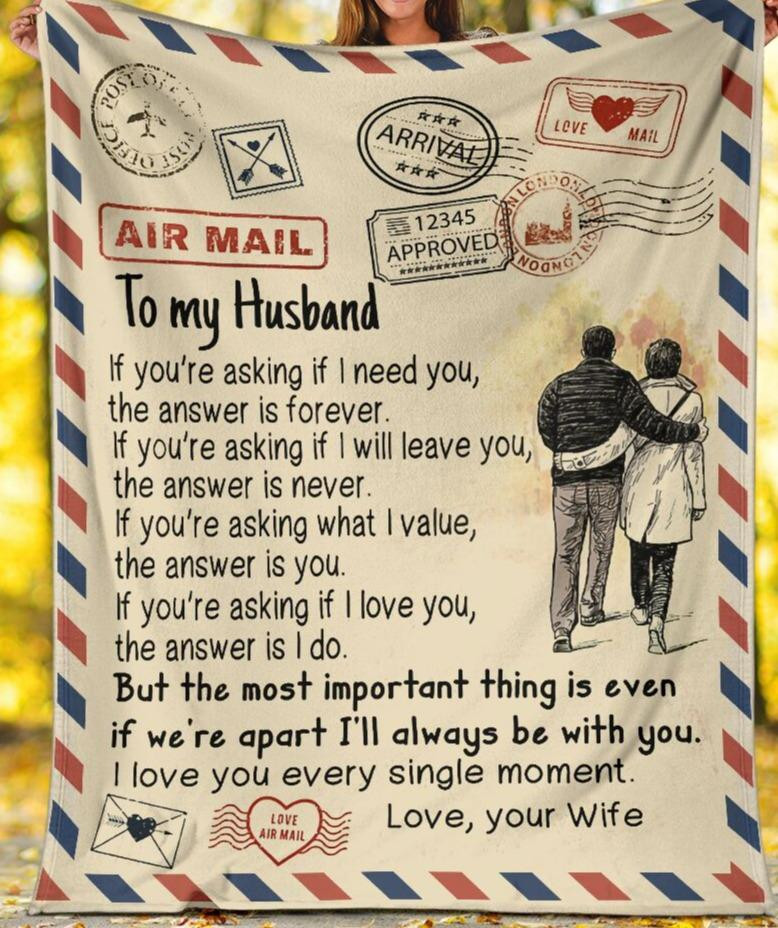 POST OFFICE POST OFFICE
ARRIVAL
LOVE MAIL
AIR MAIL
12345
APPROVED
LONDON LONDON LONDON
To my Husband
If you're asking if I need you,
the answer is forever.
If you're asking if I will leave you,
the answer is never.
If you're asking what I value,
the answer is you.
If you're asking if I love you,
the answer is I do.
But the most important thing is even
if we're apart I'll always be with you.
I love you every single moment.
LOVE
AIR MAIL
Love, your Wife